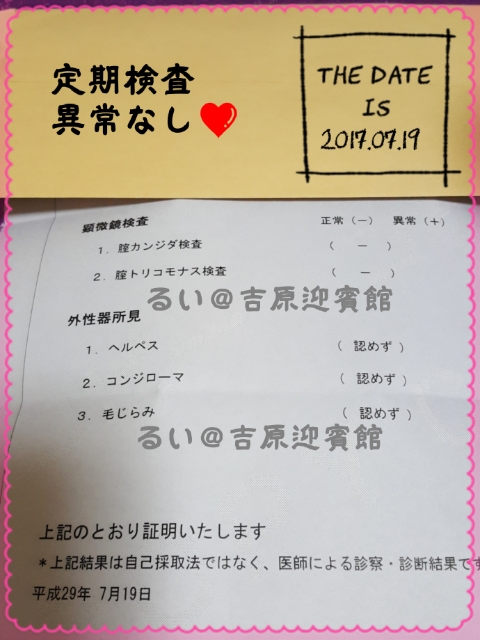 定期検査
異常なし
THE DATE
IS
2017.07.19
顕微鏡検査 正常(-) 異常(+)
1. 腟カンジダ検査 ( - )
2. 腟トリコモナス検査 ( - )
るい@吉原迎賓館
外性器所見
1. ヘルペス ( 認めず )
2. コンジローマ ( 認めず )
3. 毛じらみ ( 認めず )
るい@吉原迎賓館
上記のとおり証明いたします
*上記結果は自己採取法ではなく、医師による診察・診断結果です
平成29年 7月19日